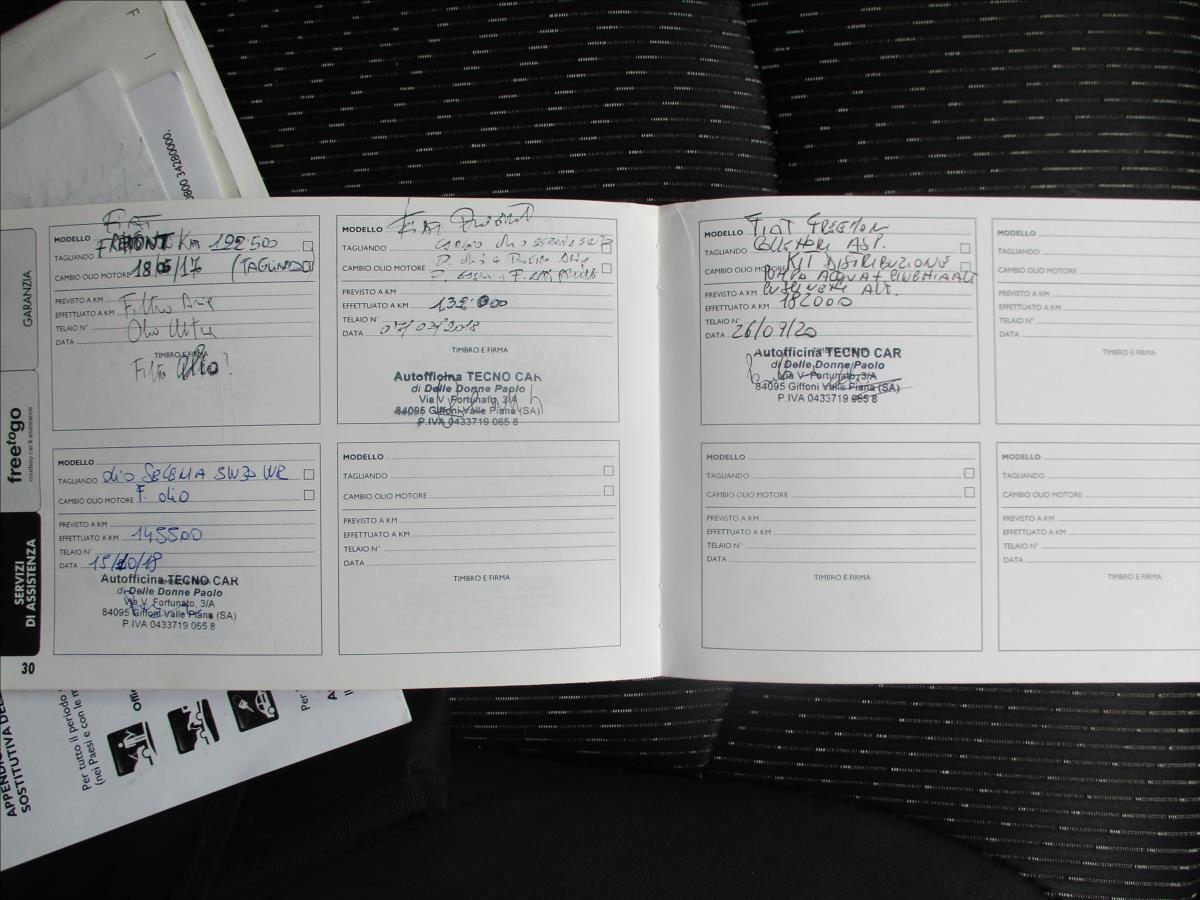 F I
0800 34280000.
GARANZIA
freetogo
courtesy car & assistance
SERVIZI
DI ASSISTENZA
30
FIAT
MODELLO FREMONT Km 122.500
TAGLIANDO
CAMBIO OLIO MOTORE 18/05/17 (TAGLIANDO)
PREVISTO A KM
EFFETTUATO A KM Filtro Aria
TELAIO N°
DATA Olio
TIMBRO E FIRMA
Filtro Olio
Fiat
MODELLO
TAGLIANDO
CAMBIO OLIO MOTORE
PREVISTO A KM
EFFETTUATO A KM 132.000
TELAIO N°
DATA 07/03/2018
TIMBRO E FIRMA
Autofficina TECNO CAR
di Delle Donne Paolo
Via V. Fortunato, 3/A
84095 Giffoni Valle Piana (SA)
P.IVA 0433719 065 8
MODELLO
TAGLIANDO olio SELENIA 5W30 WR
CAMBIO OLIO MOTORE F. olio
PREVISTO A KM
EFFETTUATO A KM 145500
TELAIO N°
DATA 15/10/18
TIMBRO E FIRMA
Autofficina TECNO CAR
di Delle Donne Paolo
Via V. Fortunato, 3/A
84095 Giffoni Valle Piana (SA)
P.IVA 0433719 065 8
MODELLO
TAGLIANDO
CAMBIO OLIO MOTORE
PREVISTO A KM
EFFETTUATO A KM
TELAIO N°
DATA
TIMBRO E FIRMA
FIAT FREEMON
MODELLO COLLETTORE ASP.
TAGLIANDO KIT DISTRIBUZIONE
CAMBIO OLIO MOTORE POMPA ACQUA +
PREVISTO A KM ALT.
EFFETTUATO A KM 182000
TELAIO N°
DATA 26/09/20
TIMBRO E FIRMA
Autofficina TECNO CAR
di Delle Donne Paolo
Via V. Fortunato, 3/A
84095 Giffoni Valle Piana (SA)
P.IVA 0433719 065 8
MODELLO
TAGLIANDO
CAMBIO OLIO MOTORE
PREVISTO A KM
EFFETTUATO A KM
TELAIO N°
DATA
TIMBRO E FIRMA
MODELLO
TAGLIANDO
CAMBIO OLIO MOTORE
PREVISTO A KM
EFFETTUATO A KM
TELAIO N°
DATA
TIMBRO E FIRMA
MODELLO
TAGLIANDO
CAMBIO OLIO MOTORE
PREVISTO A KM
EFFETTUATO A KM
TELAIO N°
DATA
TIMBRO E FIRMA
APPENDICE DEL
SOSTITUTIVA DEL
Per tutto il periodo
(nei Paesi e con le
Offi
Per